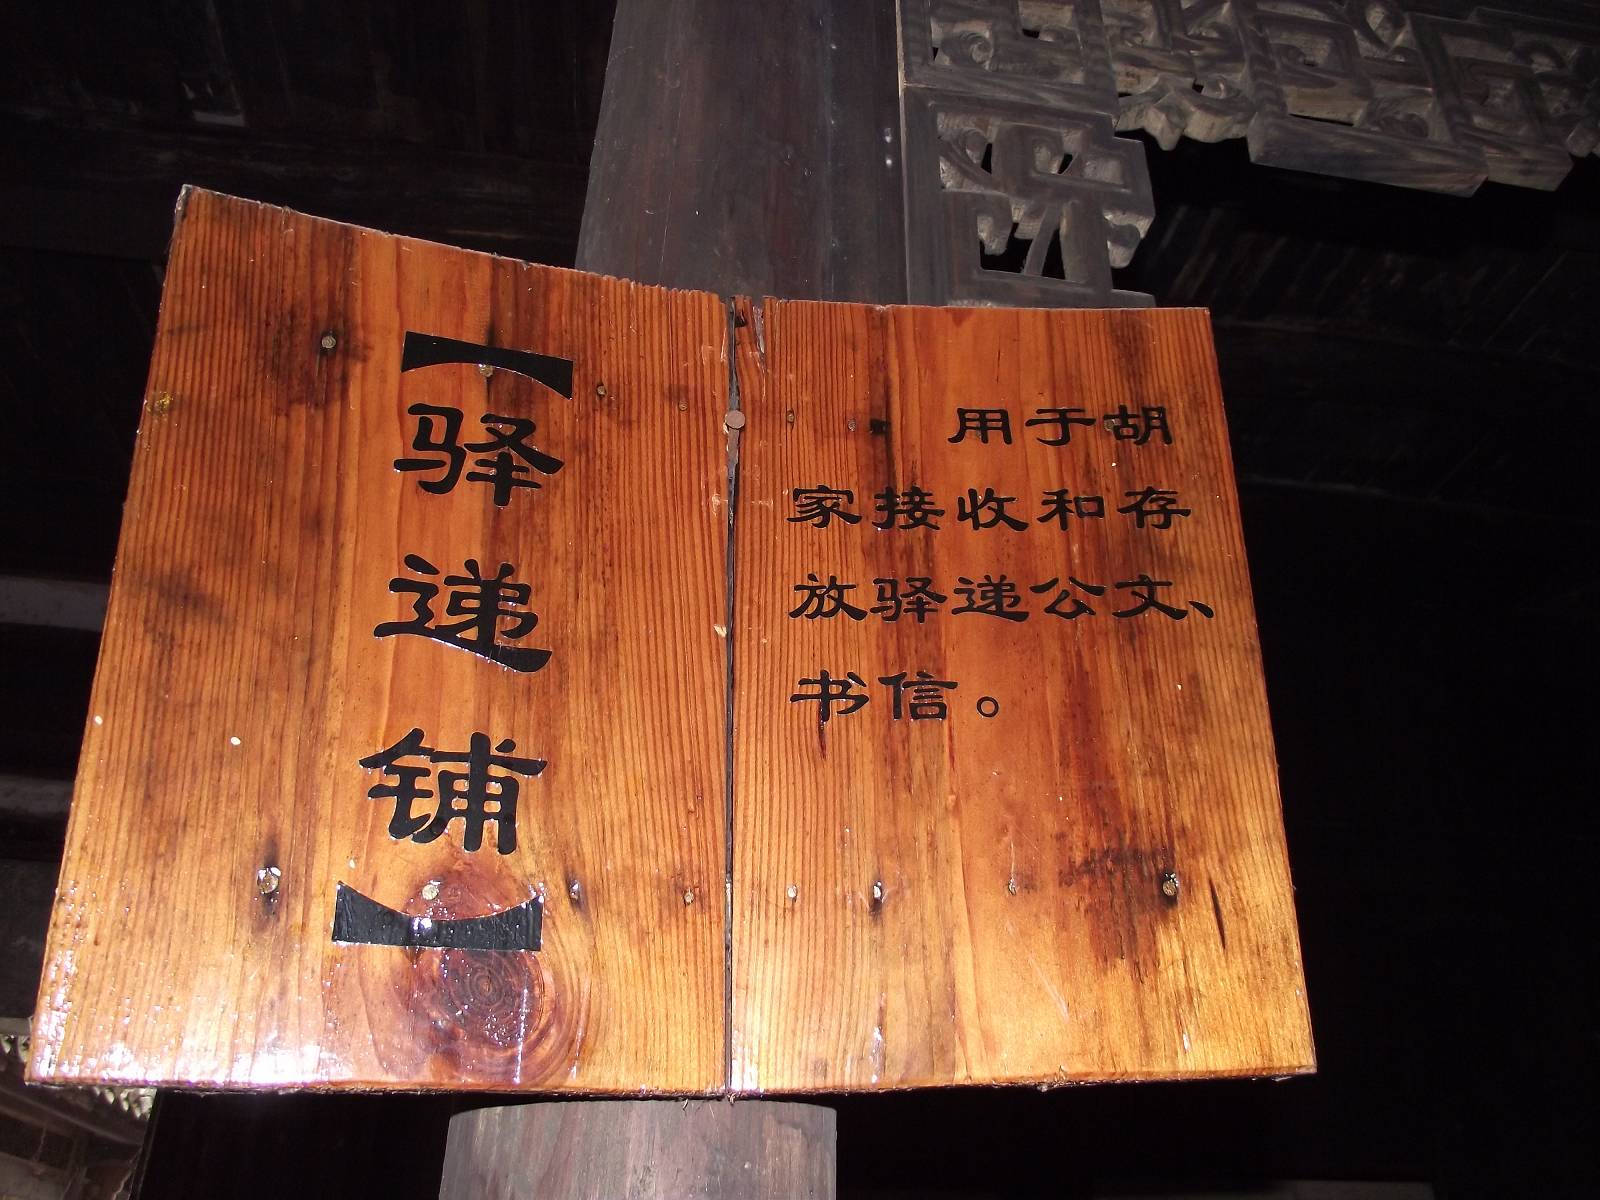 【驿递铺】
用于胡
家接收和存
放驿递公文、
书信。